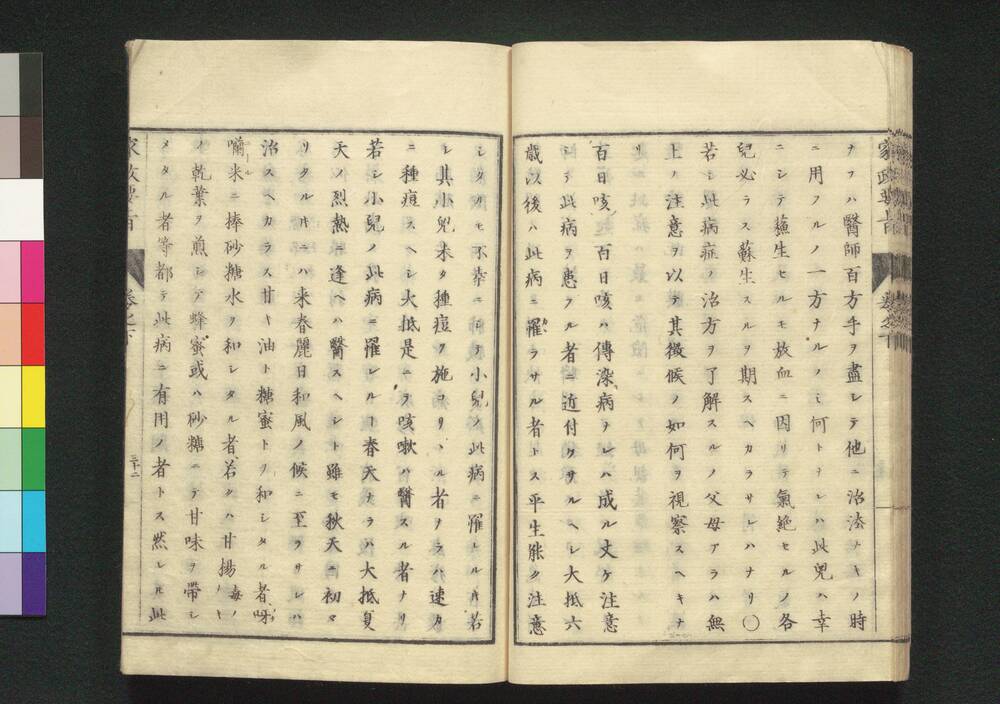 ナフハ醫師百方手ヲ盡シテ他ニ治法ナキノ時
ニ用フルノ一方ナルノミ何トナレハ此兒ハ幸
ニシテ蘓生セルモ放血ニ因リテ氣絶セルノ各
兒必ラス蘇生スルヲ期スヘカラサレハナリ〇
若シ此病症ノ治方ヲ了解スルノ父母アラハ無
上ノ注意ヲ以テ其徴候ノ如何ヲ視察スヘキナ
リ
百日咳 百日咳ハ傳染病ナレハ成ル丈ケ注意
シテ此病ヲ患フル者ニ近付クサルヘシ大抵六
歳以後ハ此病ニ罹ラサル者トス平生能ク注意
シタルモ不幸ニシテ小兒ノ此病ニ罹レルキ若
シ其小兒未タ種痘ヲ施コサヽル者ナラハ速カ
ニ種痘スヘシ大抵是ニテ咳嗽ハ醫スル者ナリ
若シ小兒ノ此病ニ罹レルヿ春天ナラハ大抵夏
天ノ烈熱ニ逢ヘハ醫スヘシト雖モ秋天ニ初マ
リタルキニハ来春麗日和風ノ候ニ至ラサレハ
治スヘカラス甘キ油ト糖蜜トヲ和シタル者呀
囒米ニ捧砂糖水ヲ和シタル者若クハ甘揚毒ノキ
ノ乾葉ヲ煎シテ蜂蜜或ハ砂糖ニテ甘味ヲ帶シ
メタル者等都テ此病ニ有用ノ者トス然レル此
家政要旨
卷之下
三十二